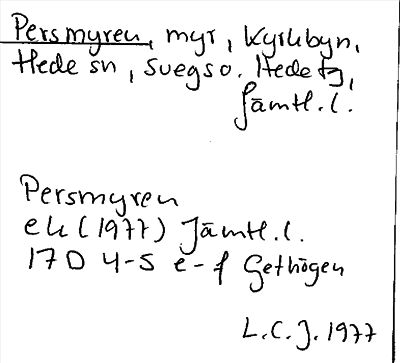 Persmyren, myr, Kyrkbyn,
Hede sn, Svegs o. Hede tg,
Jämtl. l.
Persmyren
ek (1977) Jämtl. l.
17D 4-5 e-f Gethögen
L.C.J. 1977